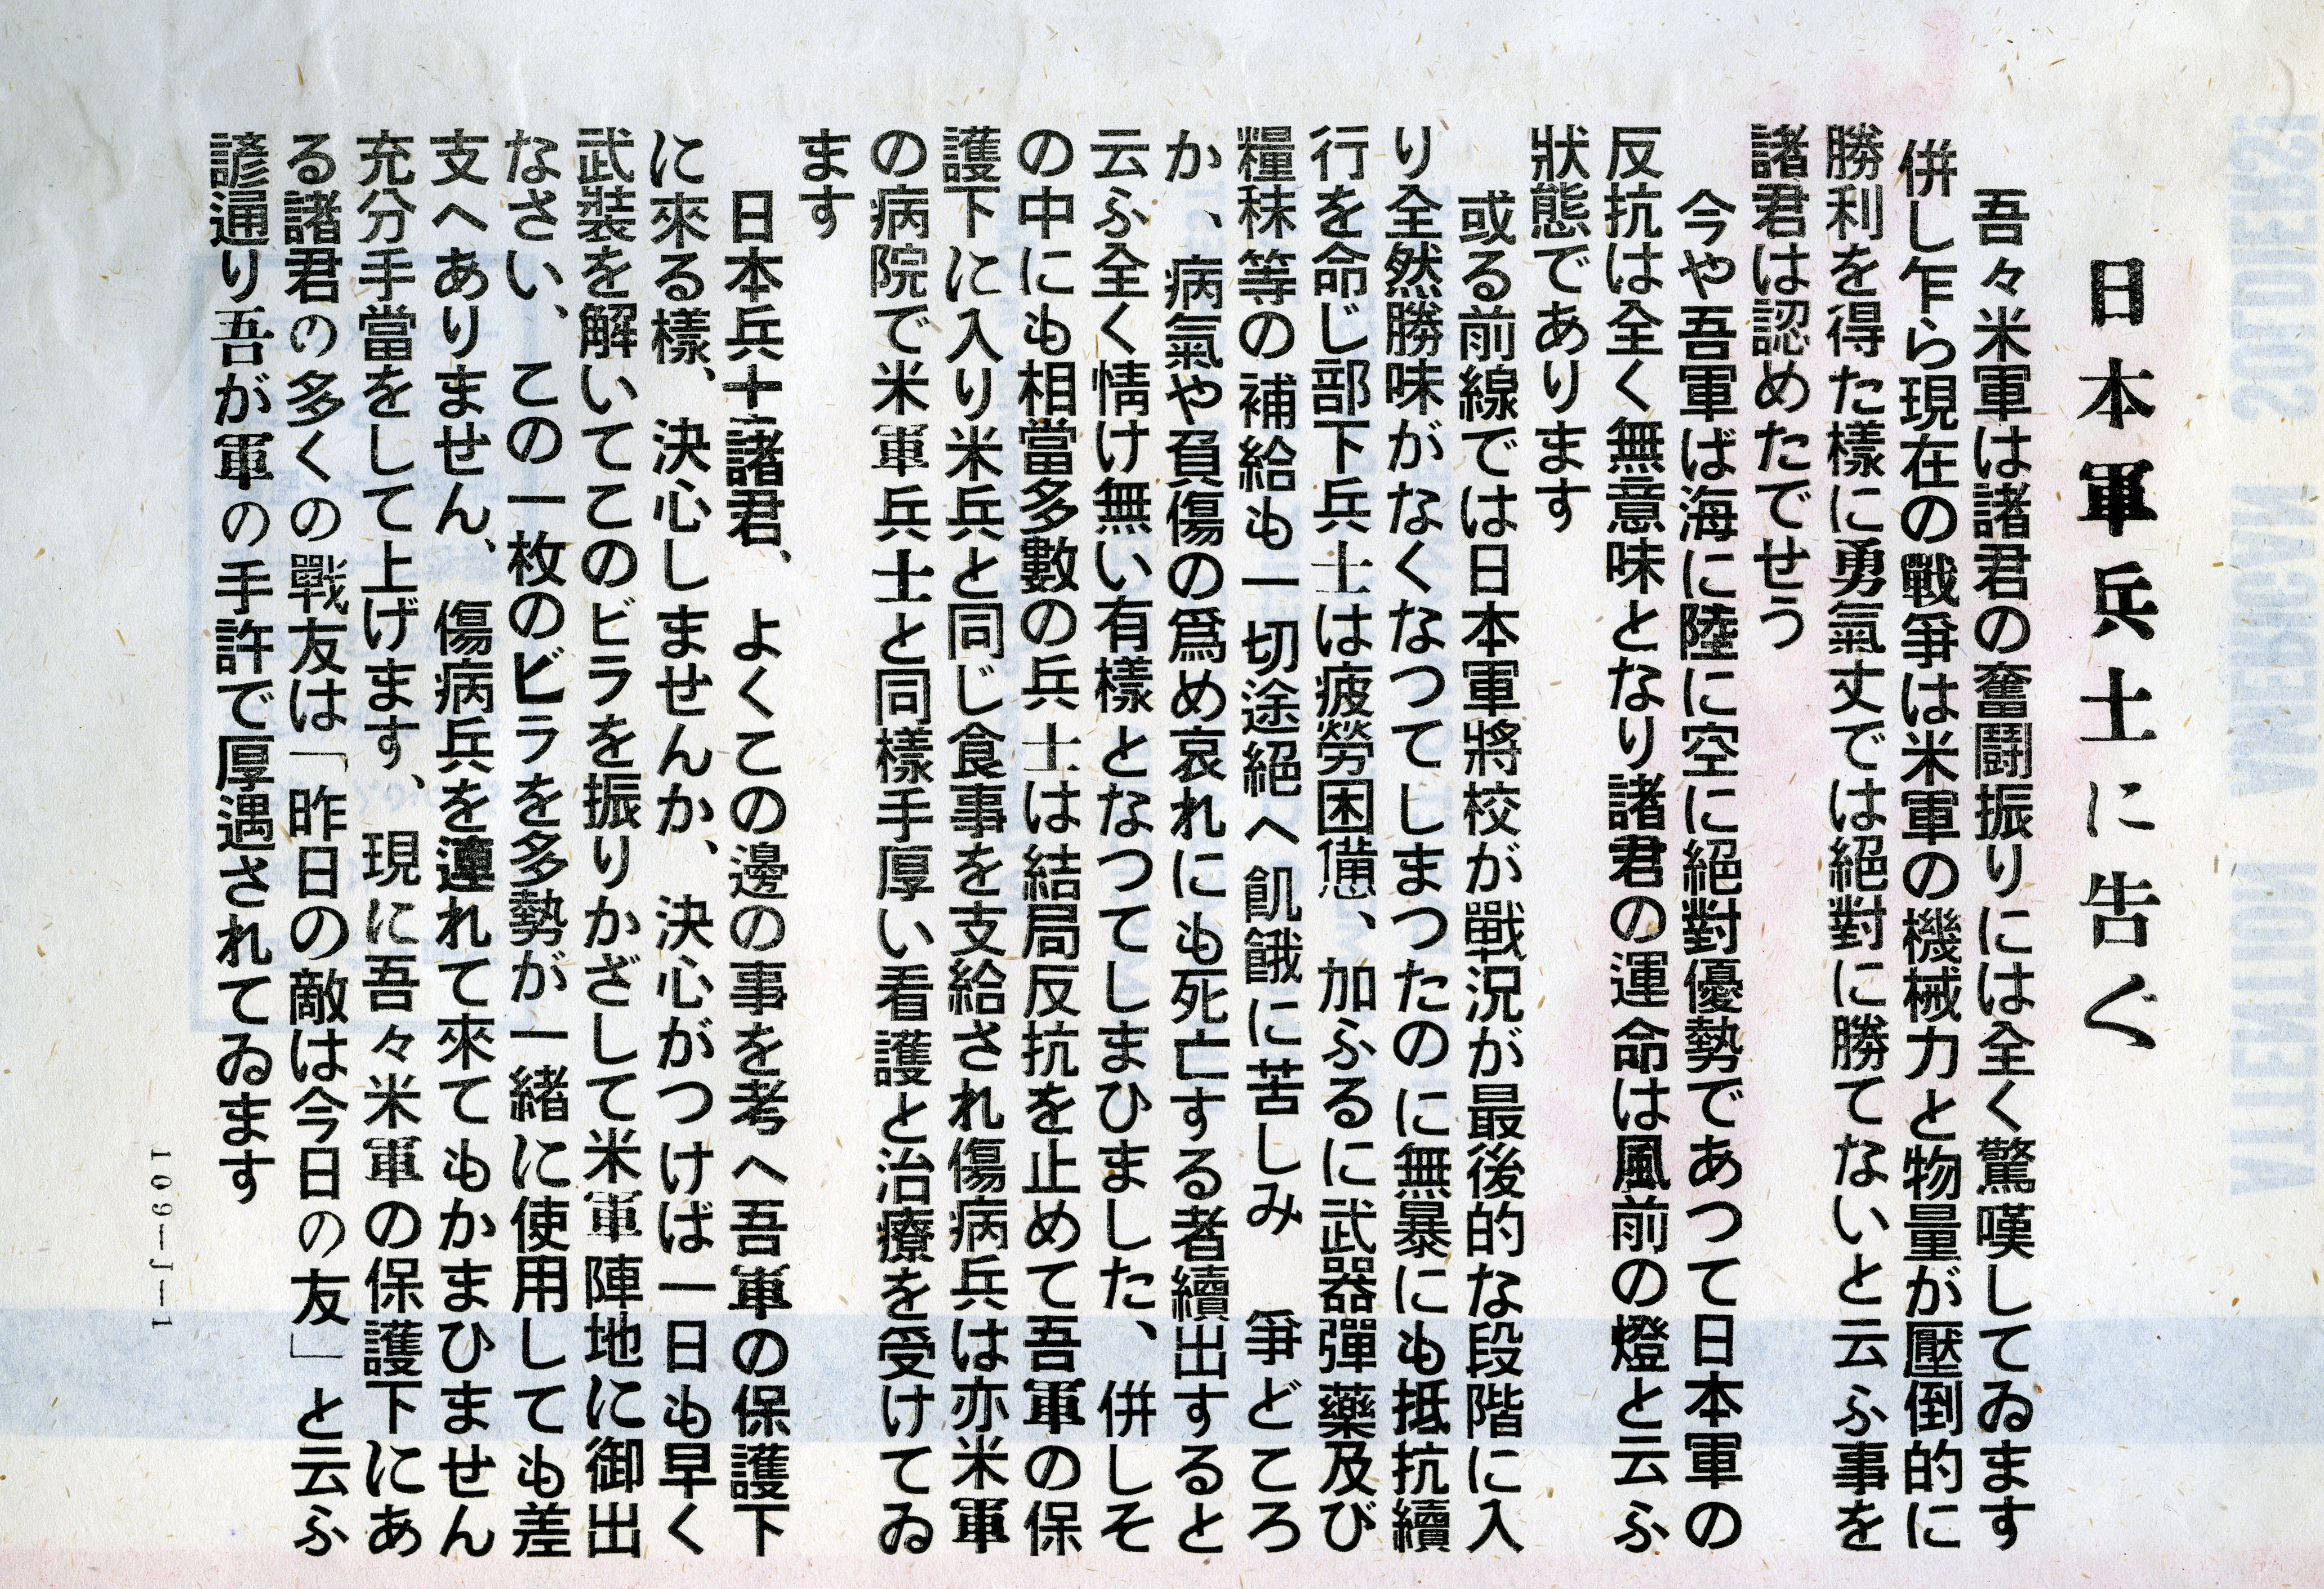 日本軍兵士に告ぐ
吾々米軍は諸君の奮鬪振りには全く驚嘆してゐます
併し乍ら現在の戰爭は米軍の機械力と物量が壓倒的に
勝利を得た樣に勇氣丈では絕對に勝てないと云ふ事を
諸君は認めたでせう
今や吾軍ば海に陸に空に絕對優勢であつて日本軍の
反抗は全く無意味となり諸君の運命は風前の燈と云ふ
狀態であります
或る前線では日本軍將校が戰況が最後的な段階に入
り全然勝味がなくなつてしまつたのに無暴にも抵抗續
行を命じ部下兵士は疲勞困憊、加ふるに武器彈藥及び
糧秣等の補給も一切途絕へ飢餓に苦しみ 爭どころ
か、病氣や負傷の爲め哀れにも死亡する者續出すると
云ふ全く情け無い有樣となつてしまひました、併しそ
の中にも相當多數の兵士は結局反抗を止めて吾軍の保
護下に入り米兵と同じ食事を支給され傷病兵は亦米軍
の病院で米軍兵士と同樣手厚い看護と治療を受けてゐ
ます
日本兵士諸君、よくこの邊の事を考へ吾軍の保護下
に來る樣、決心しませんか、決心がつけば一日も早く
武裝を解いてこのビラを振りかざして米軍陣地に御出
なさい、この一枚のビラを多勢が一緖に使用しても差
支へありません、傷病兵を連れて來てもかまひません
充分手當をして上げます、現に吾々米軍の保護下にあ
る諸君の多くの戰友は「昨日の敵は今日の友」と云ふ
諺通り吾が軍の手許で厚遇されてゐます
109—J—1